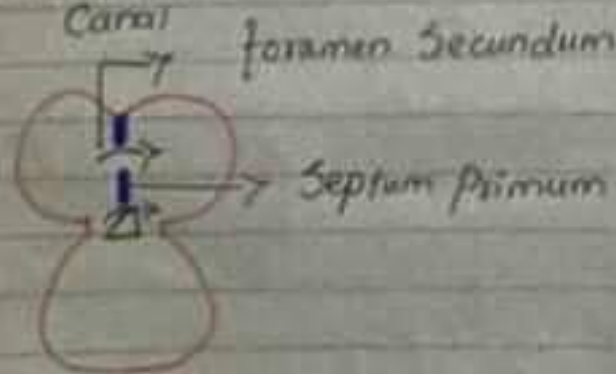 Canal
foramen Secundum
Septum Primum